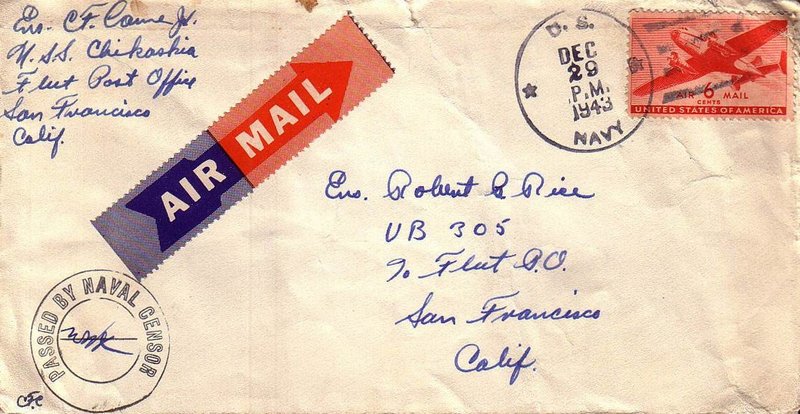 Ens. C.F. Carne Jr.
U.S.S. Chikaskia
Fleet Post Office
San Francisco
Calif.
AIR MAIL
U. S.
DEC
29
P.M.
1943
NAVY
AIR 6 MAIL
CENTS
UNITED STATES OF AMERICA
Ens. Robert G Rice
VB 305
% Fleet P.O.
San Francisco
Calif.
PASSED BY NAVAL CENSOR